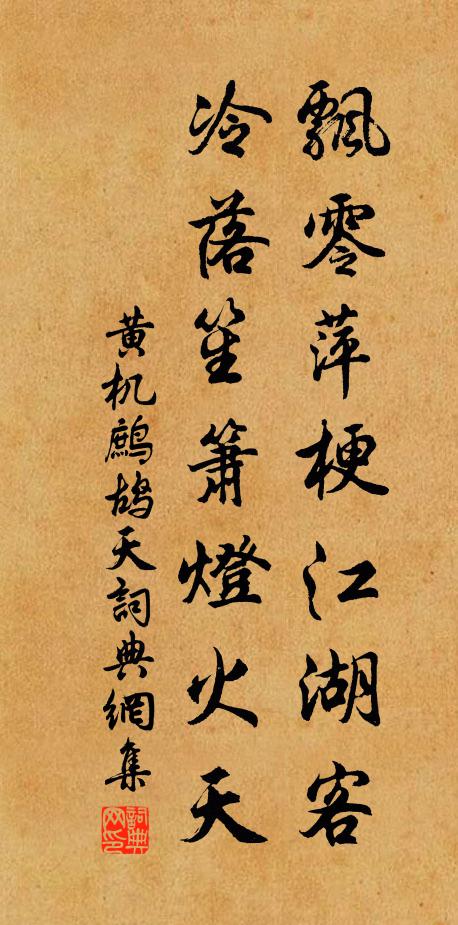 飄零萍梗江湖客
冷落笙簫燈火天
黄机鷓鸪天詞典網集
詞典网印